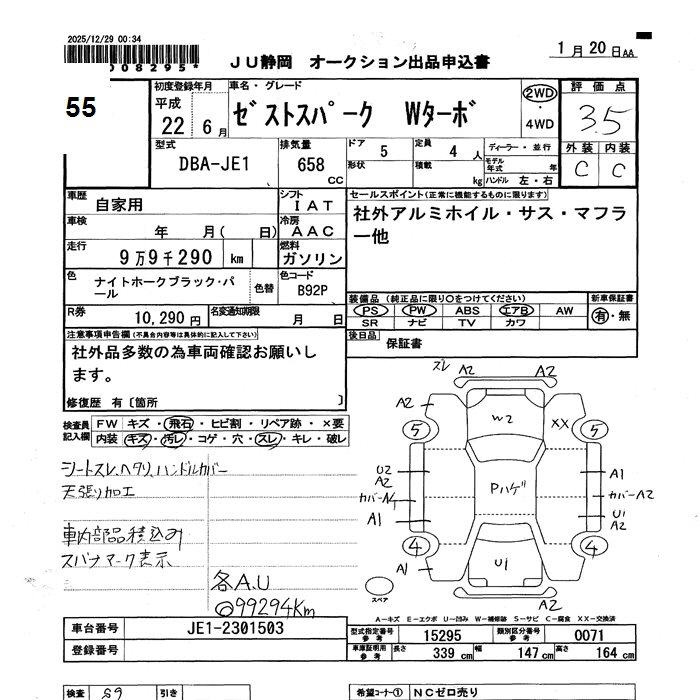 2025/12/29 00:34
008295*
JU静岡 オークション出品申込書
1月20日AA
55
初度登録年月
平成
22 6月
車名・グレード
ゼストスパーク Wターボ
2WD
・
4WD
評価点
3.5
外装 内装
C C
型式
DBA-JE1
排気量
658
CC
ドア
5
形状
定員
4人
積載
kg
ディーラー・並行
モデル
年式
年
ハンドル 左・右
車歴
自家用
シフト
IAT
セールスポイント(正常に機能するものに限ります)
社外アルミホイル・サス・マフラ
ー他
車検
年 月( 日)
冷房
AAC
走行
9万9千290 km
燃料
ガソリン
色
ナイトホークブラック・パ
ール
色替
色コード
B92P
装備品(純正品に限り○をつけてください)
PS PW ABS エアB AW
SR ナビ TV カワ
新車保証書
有・無
R券
10,290円
名変通知期限
月 日
後日品
保証書
注意事項申告欄(不具合内容等は具体的に記入して下さい)
社外品多数の為車両確認お願いし
ます。
修復歴 有〔箇所 〕
検査員
記入欄
FW キズ・飛石・ヒビ割・リペア跡・×要
内装 キズ・汚レ・コゲ・穴・スレ・キレ・破レ
シートスレ、ヘタリ、ハンドルカバー
天張り加工
車内部品積込み
スパナマーク表示
各A.U
◎99294Km
ズレ A2 A2
A2 W2 XX
5 5
U2
A2
カバーA
A1
Pハゲ
A1
カバーA2
U1
A2
4 4
A1 U1
A2
スペア
A-キズ E-エクボ U-凹み W-補修跡 S-サビ C-腐食 XX-交換済
車台番号 JE1-2301503
登録番号
型式指定番号
参考
15295
類別区分番号
参考
0071
車庫証明用
参考
長さ 339cm 幅 147cm 高さ 164cm
検査 S9 引き
希望コーナー① NCゼロ売り